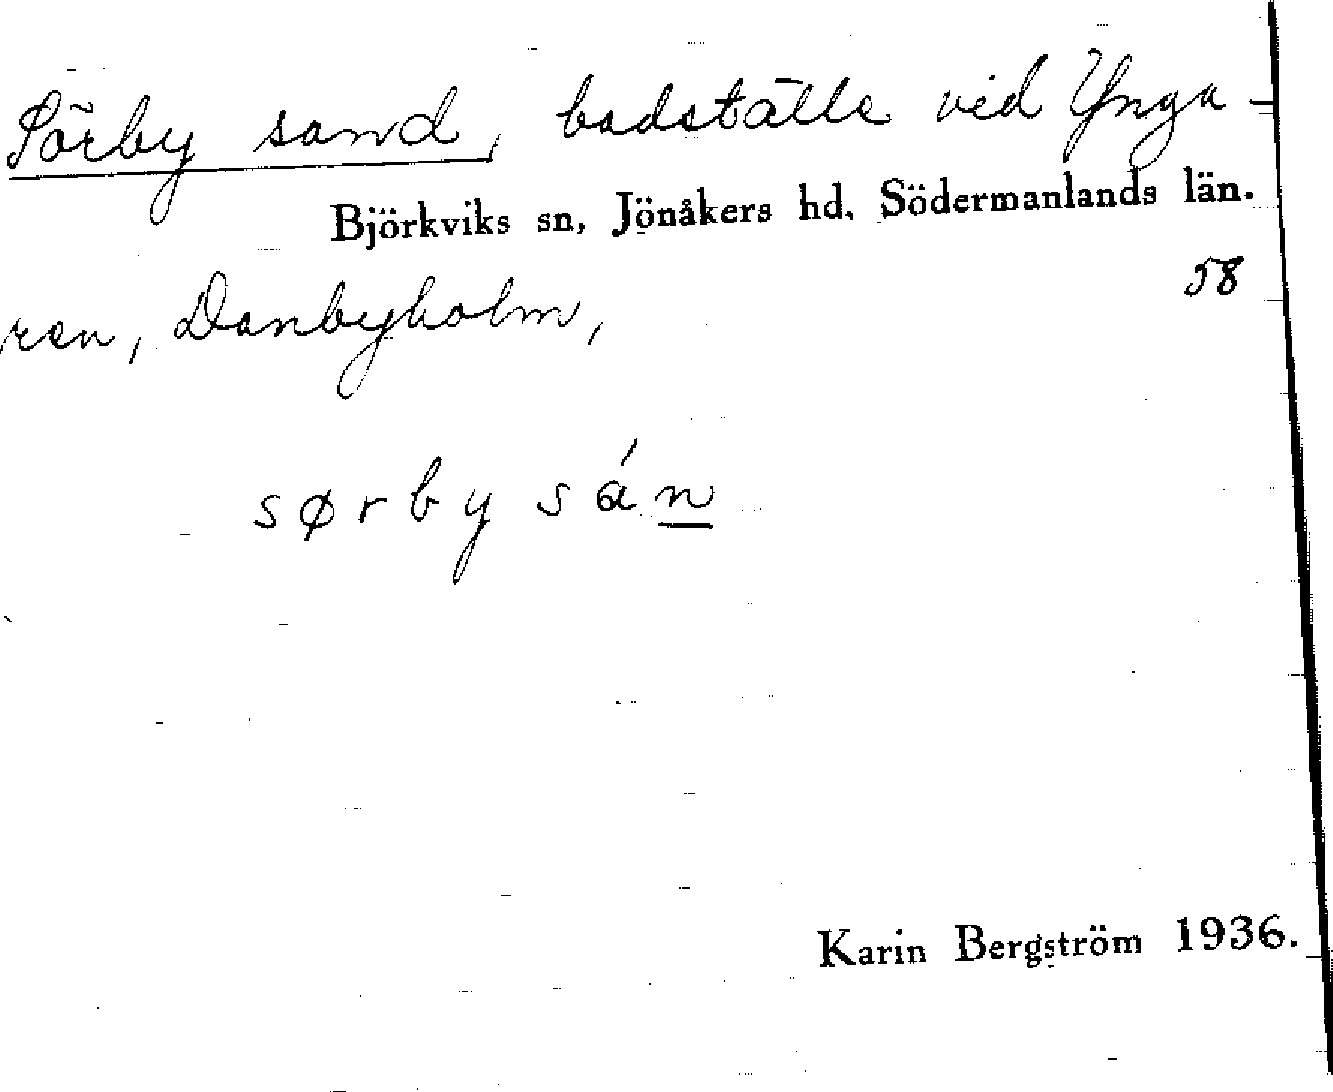 Sörby sand, badställe vid Ynga-
Björkviks sn, Jönåkers hd, Södermanlands län.
58
ren, Danbyholm,
sørby sán
Karin Bergström 1936.